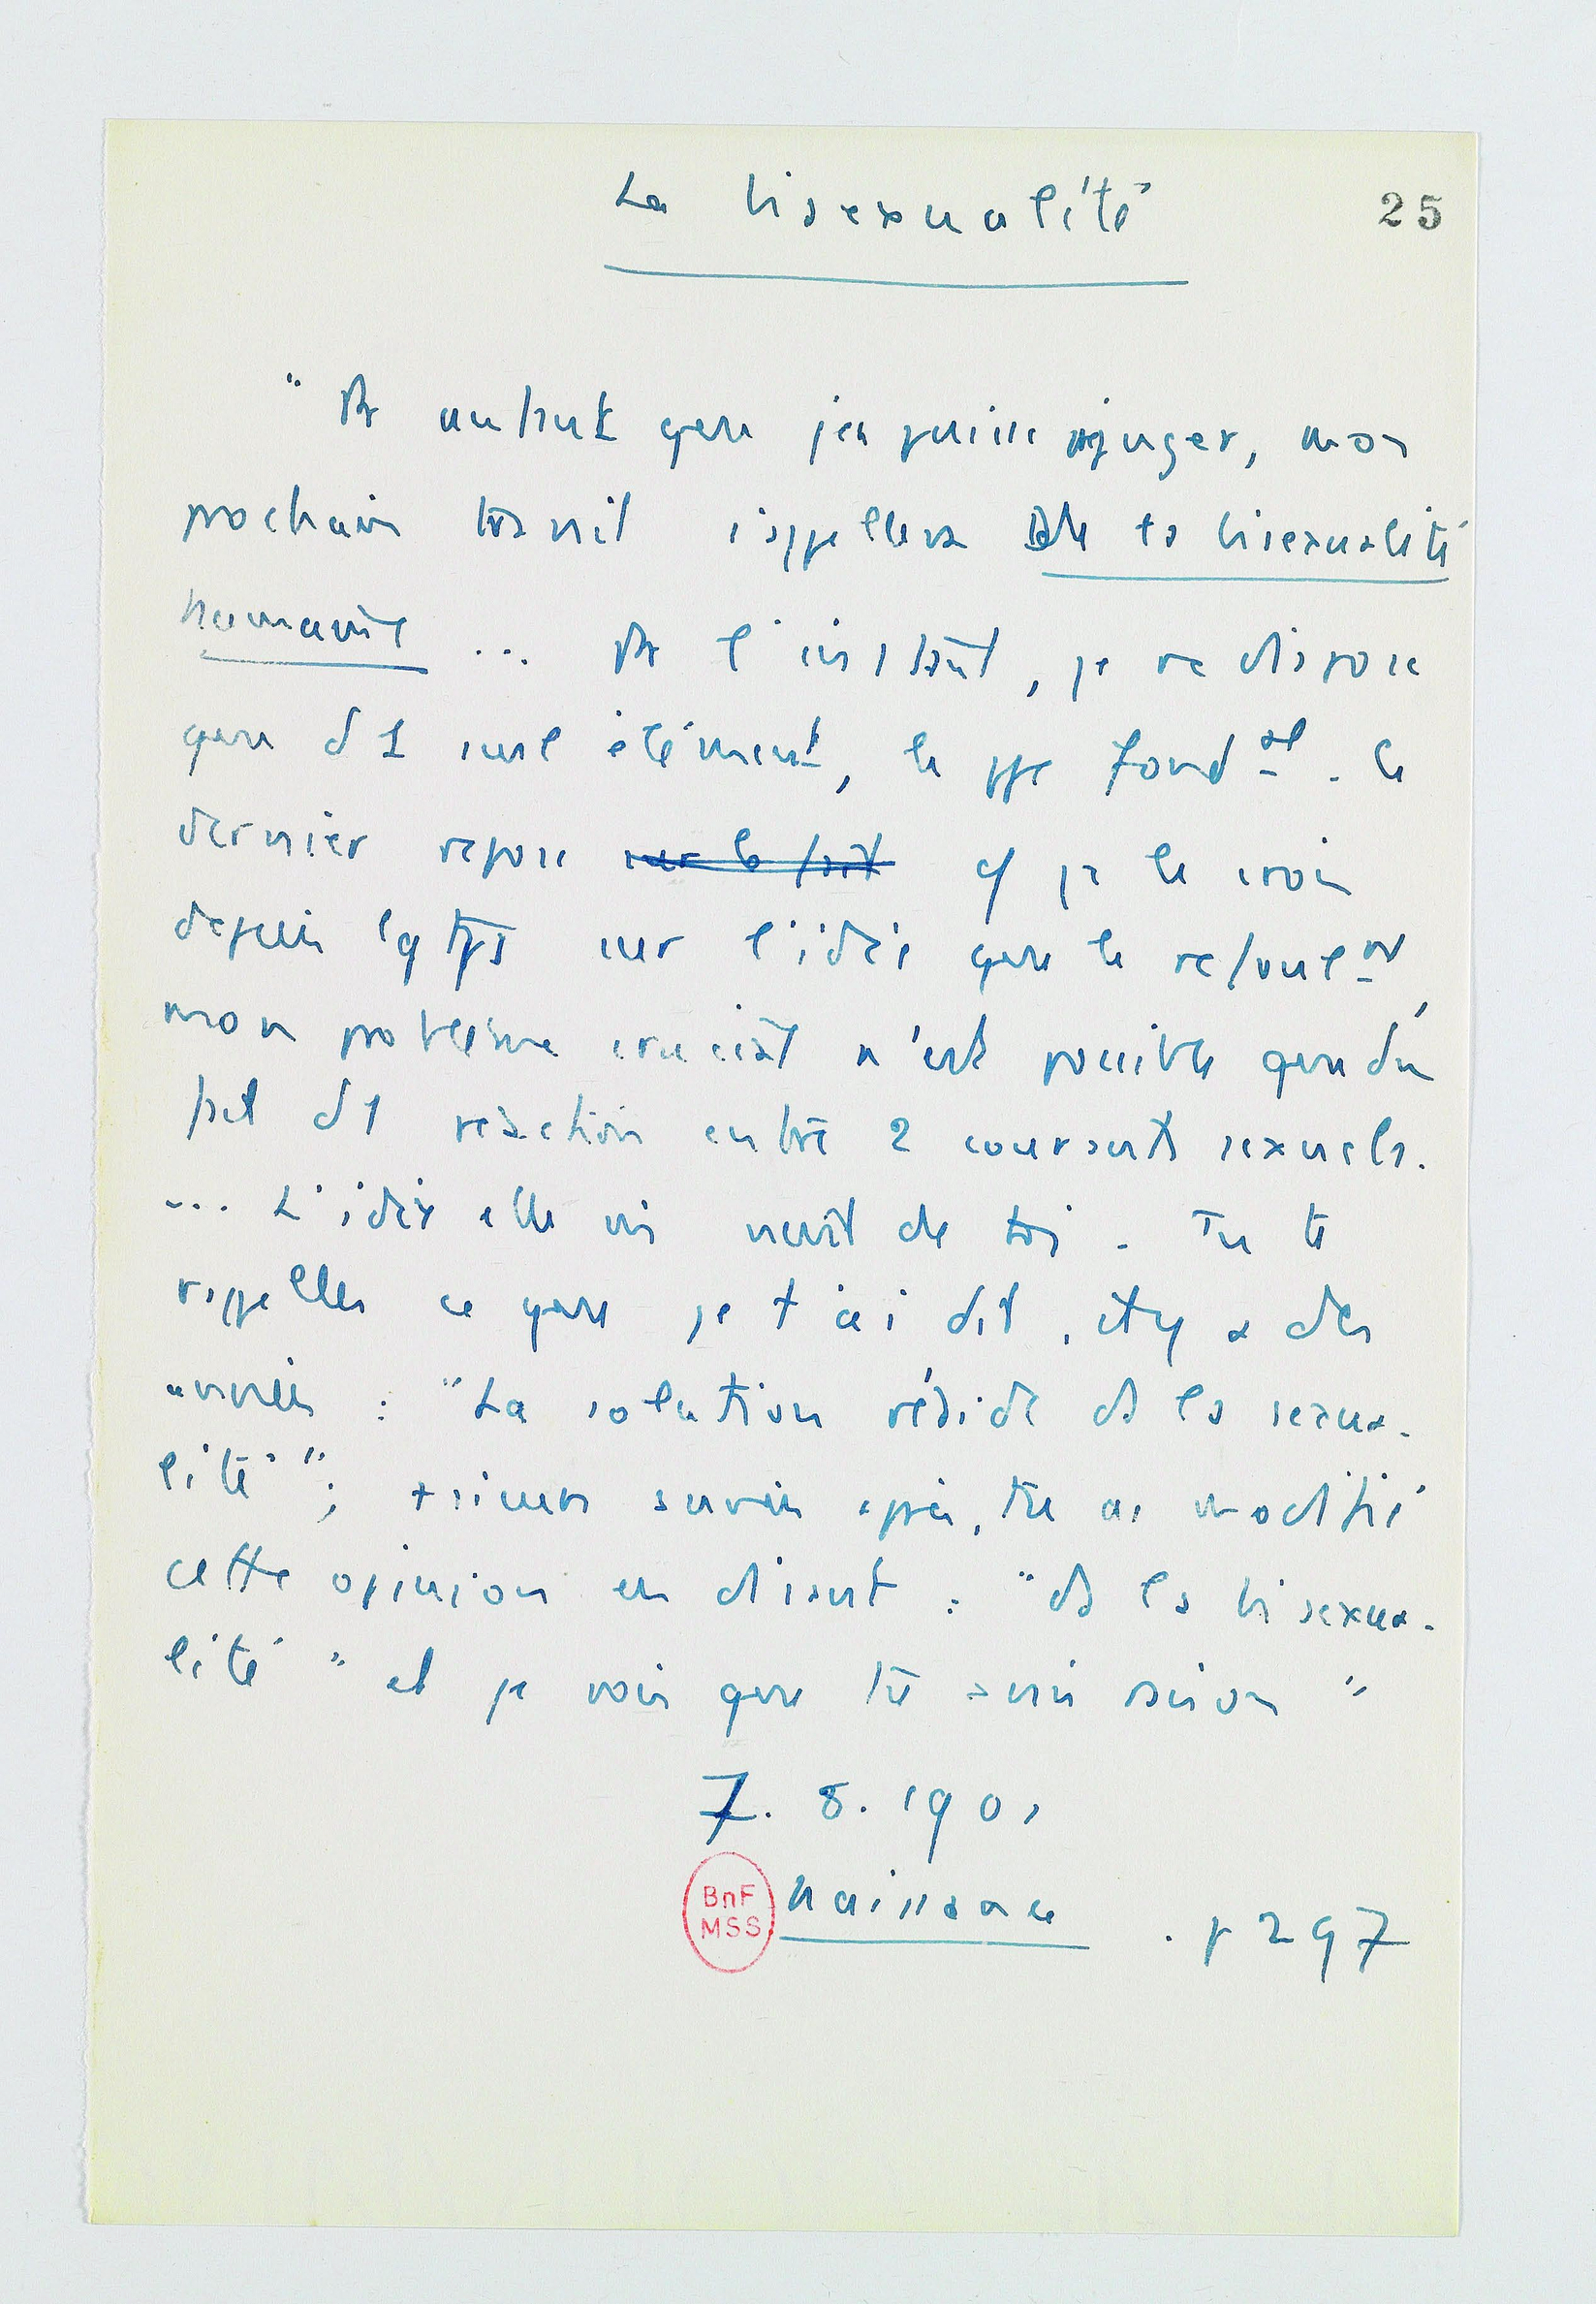 La bisexualité
25
" Pr autant que j'en puisse juger, mon
prochain travail s'appellera De la bisexualité
humaine ... Pr l'instant, je ne dispose
que d'1 seul élément, le ppe fondal. Ce
dernier repose sur le fait cf je le crois
depuis lgtps sur l'idée que le refoulent,
mon problème crucial n'est possible que du
fait d'1 réaction entre 2 courants sexuels.
... L'idée elle vient de toi. Tu te
rappelles ce que je t'ai dit, il y a des
années : "La solution réside ds la sexua-
lité"; +sieurs années après, tu as modifié
cette opinion en disant : "ds la bisexua-
lité" et je vois que tu avais raison "
7. 8. 1901
BnF
MSS
Naissance . p 297